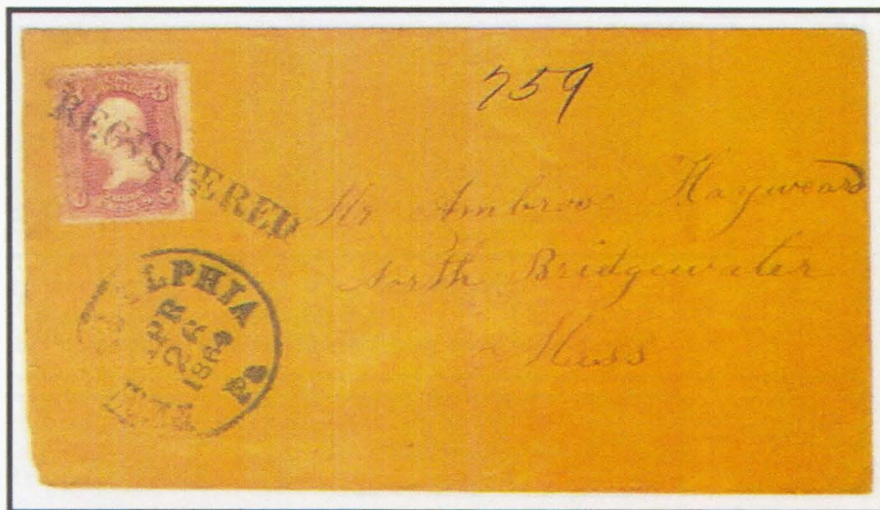 759
REGISTERED
Mr Ambrose Hayward
North Bridgewater
Mass
LPHIA Pa
APR
26
1864